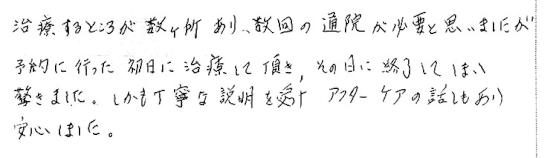 治療するところが数ヶ所あり、数回の通院が必要と思いましたが
予約に行った初日に治療して頂き、その日に終了してしまい
驚きました。しかも丁寧な説明を受け アフターケアの話しもあり
安心しました。